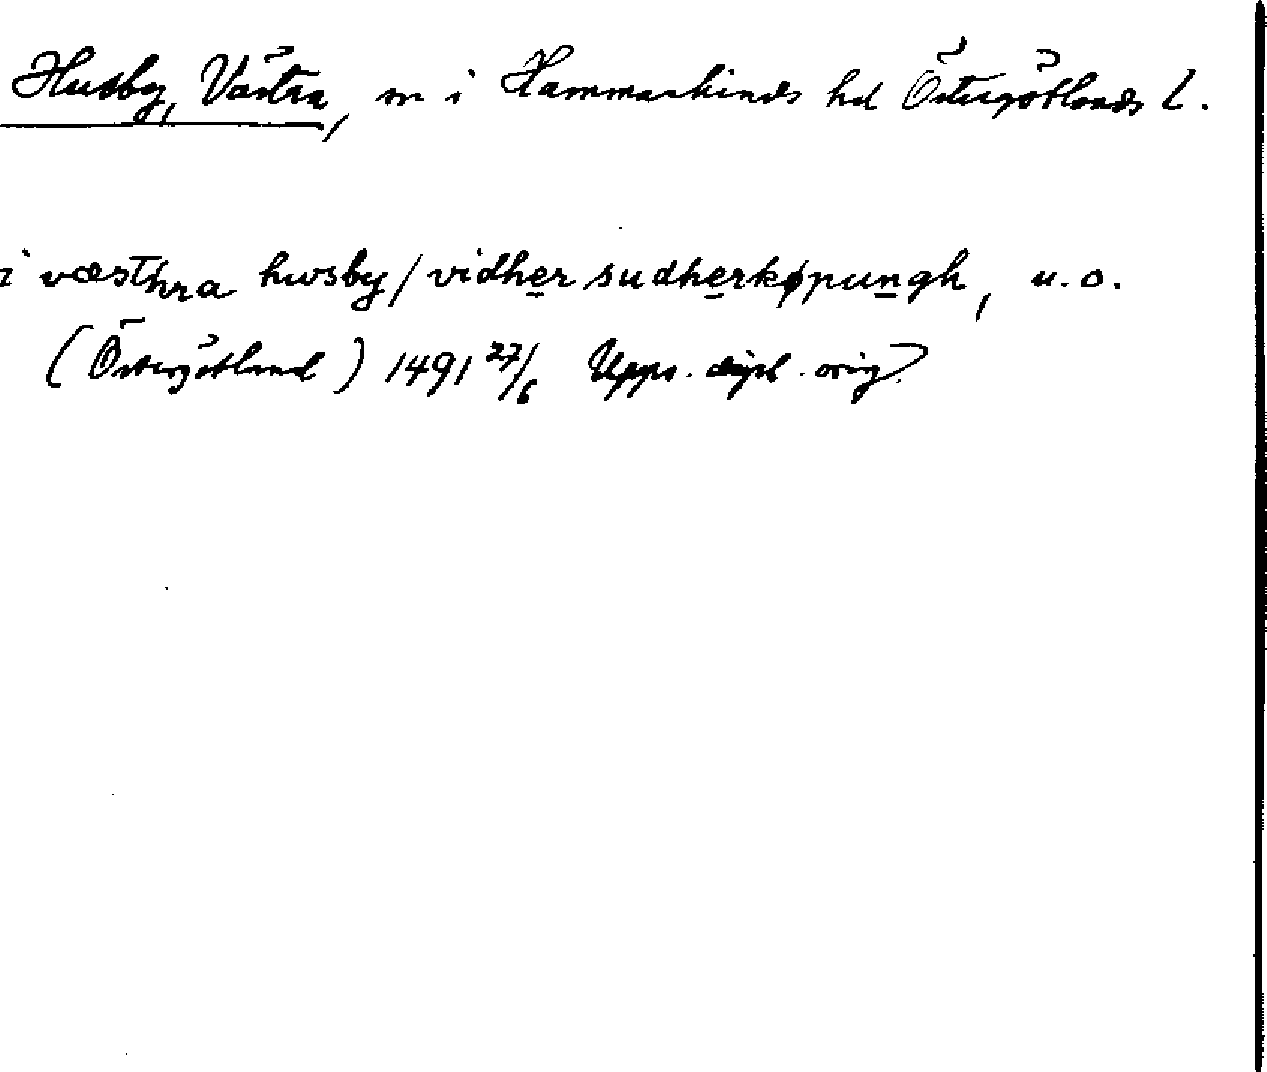 Husby, Västra, sn i Hammarkinds hd Östergötlands L.
i væsthra hwsby/vidher sudherkøpungh, u.o.
(Östergötland) 1491 27/6 Upps. dipl. orig.